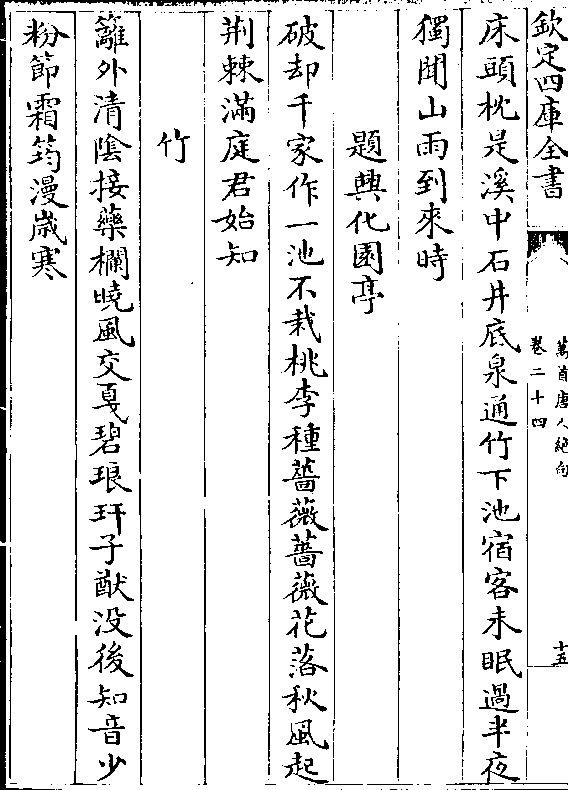 欽定四庫全書
萬首唐人絕句
卷二十四
十五
床頭枕是溪中石井底泉通竹下池宿客未眠過半夜
獨聞山雨到來時
題興化園亭
破却千家作一池不栽桃李種薔薇薔薇花落秋風起
荆棘滿庭君始知
竹
籬外清陰接藥欄曉風交戛碧琅玕子猷没後知音少
粉節霜筠漫歲寒